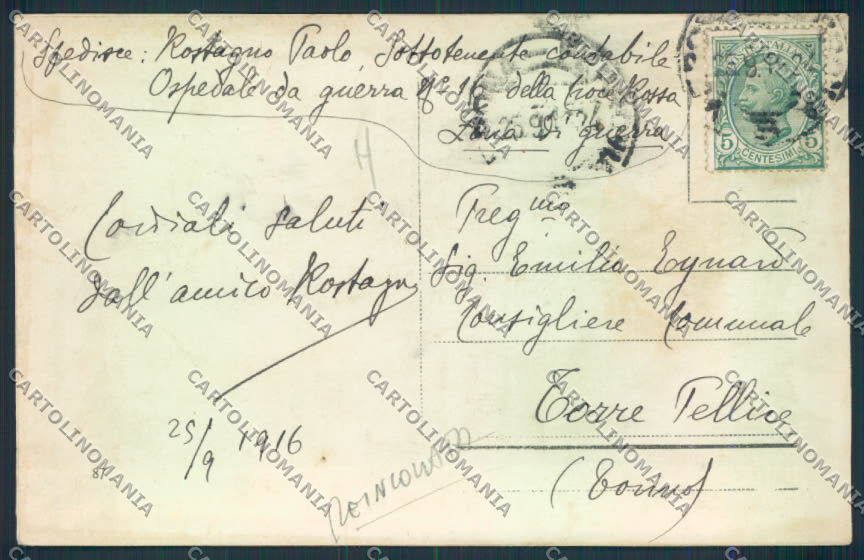 Spedisce: Rostagno Paolo Sottotenente contabile
Ospedale da guerra N° 16 della Croce Rossa
Zona di guerra
H
Cordiali saluti
dall'amico Rostagno
25/9 1916
8
Preg mo
Sig. Emilio Eynard
Consigliere Comunale
Torre Pellice
(Torino)
5 CENTESIMI 5
CARTOLINOMANIA